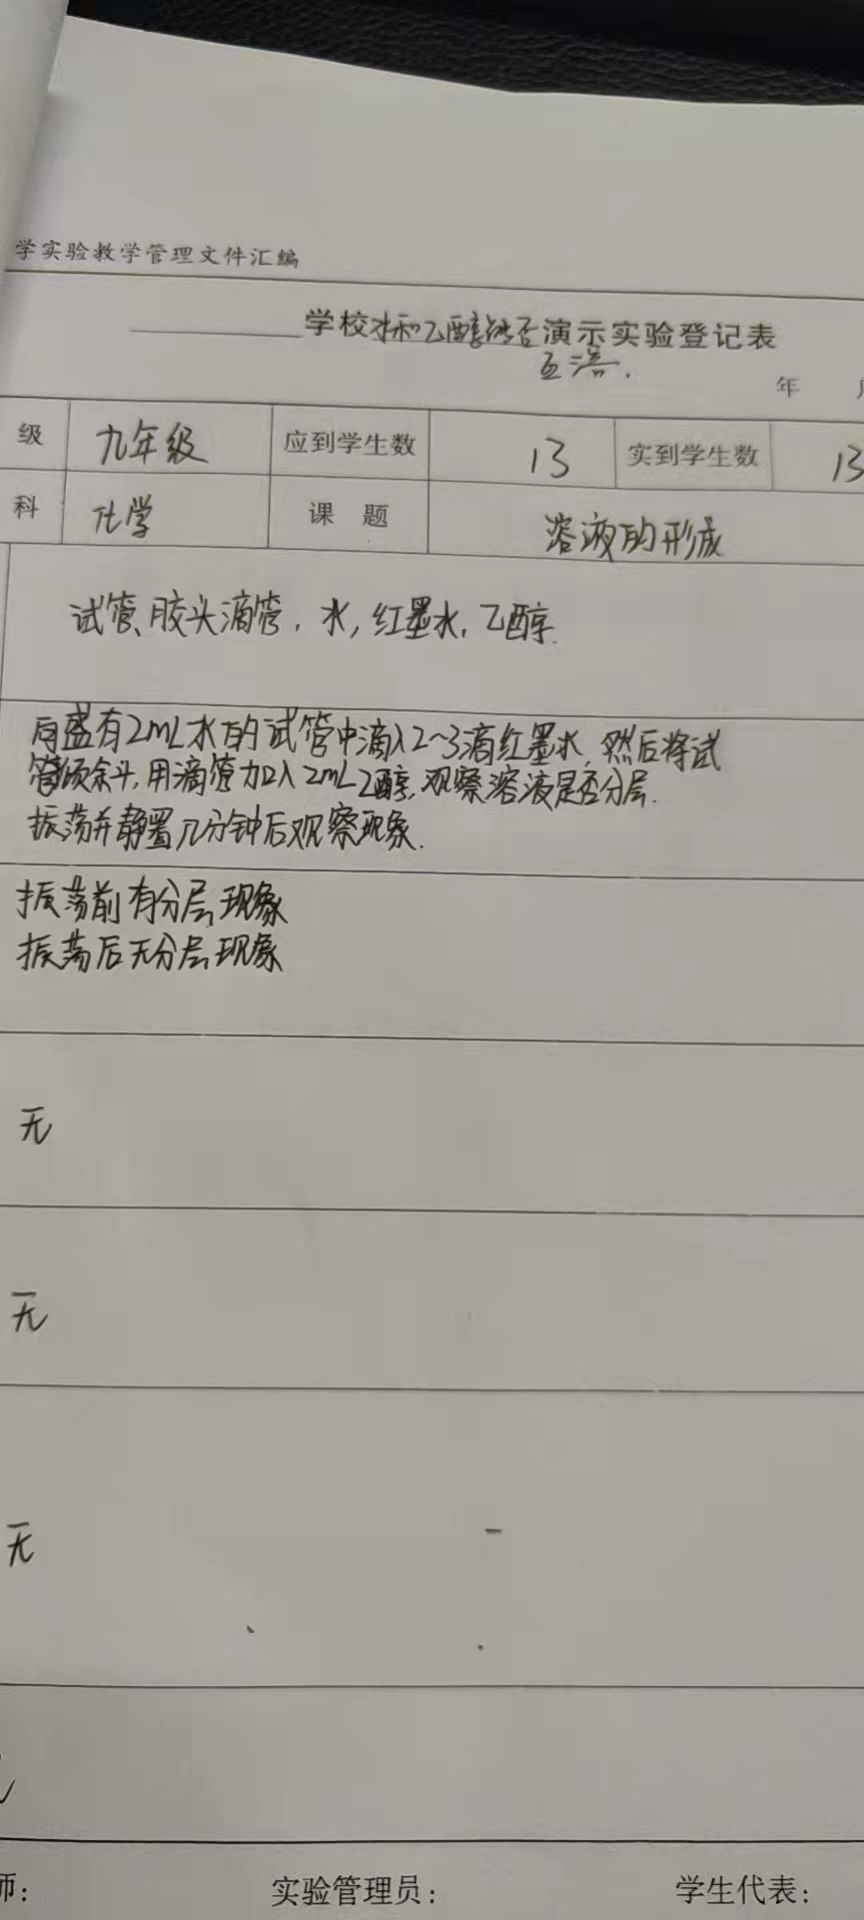 学实验教学管理文件汇编
学校水和乙醇能否演示实验登记表
互溶.
年
级 九年级 应到学生数 13 实到学生数 13
科 化学 课 题 溶液的形成
试管、胶头滴管, 水, 红墨水, 乙醇.
向盛有2mL水的试管中滴入2~3滴红墨水, 然后将试
管倾斜, 用滴管加入2mL乙醇, 观察溶液是否分层.
振荡并静置几分钟后观察现象.
振荡前有分层现象
振荡后无分层现象
无
无
无
师: 实验管理员: 学生代表: